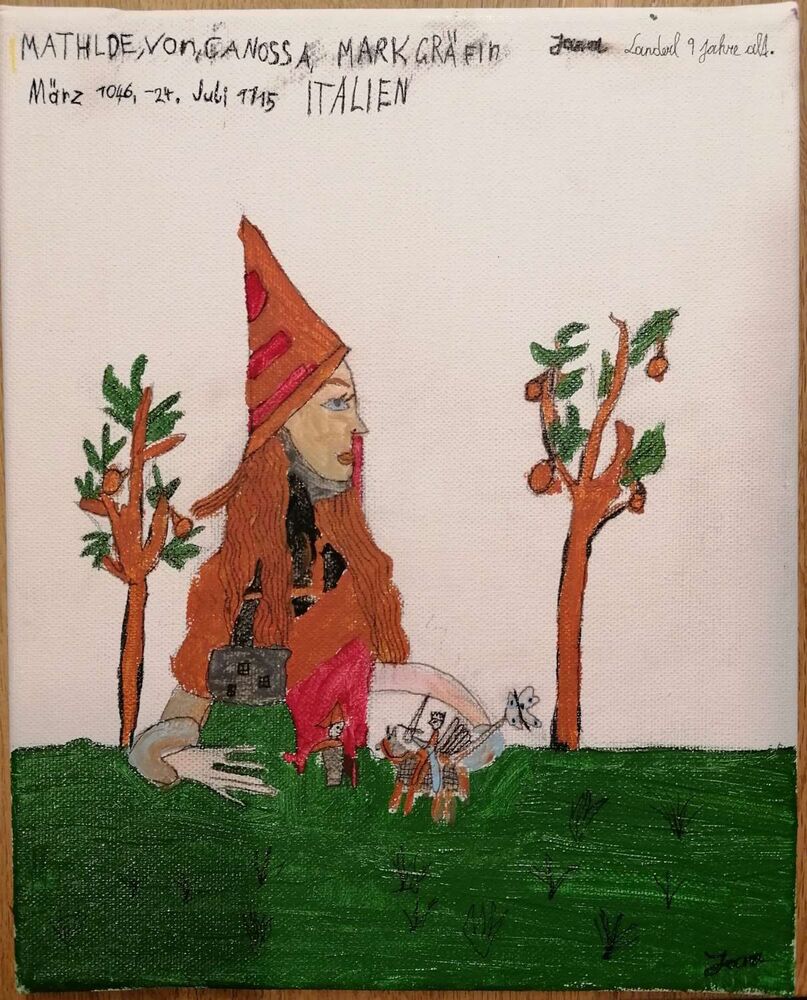 MATHILDE, VON, CANOSSA, MARKGRÄFIN Landerl 9 Jahre alt.
März 1046, -24. Juli 1115 ITALIEN